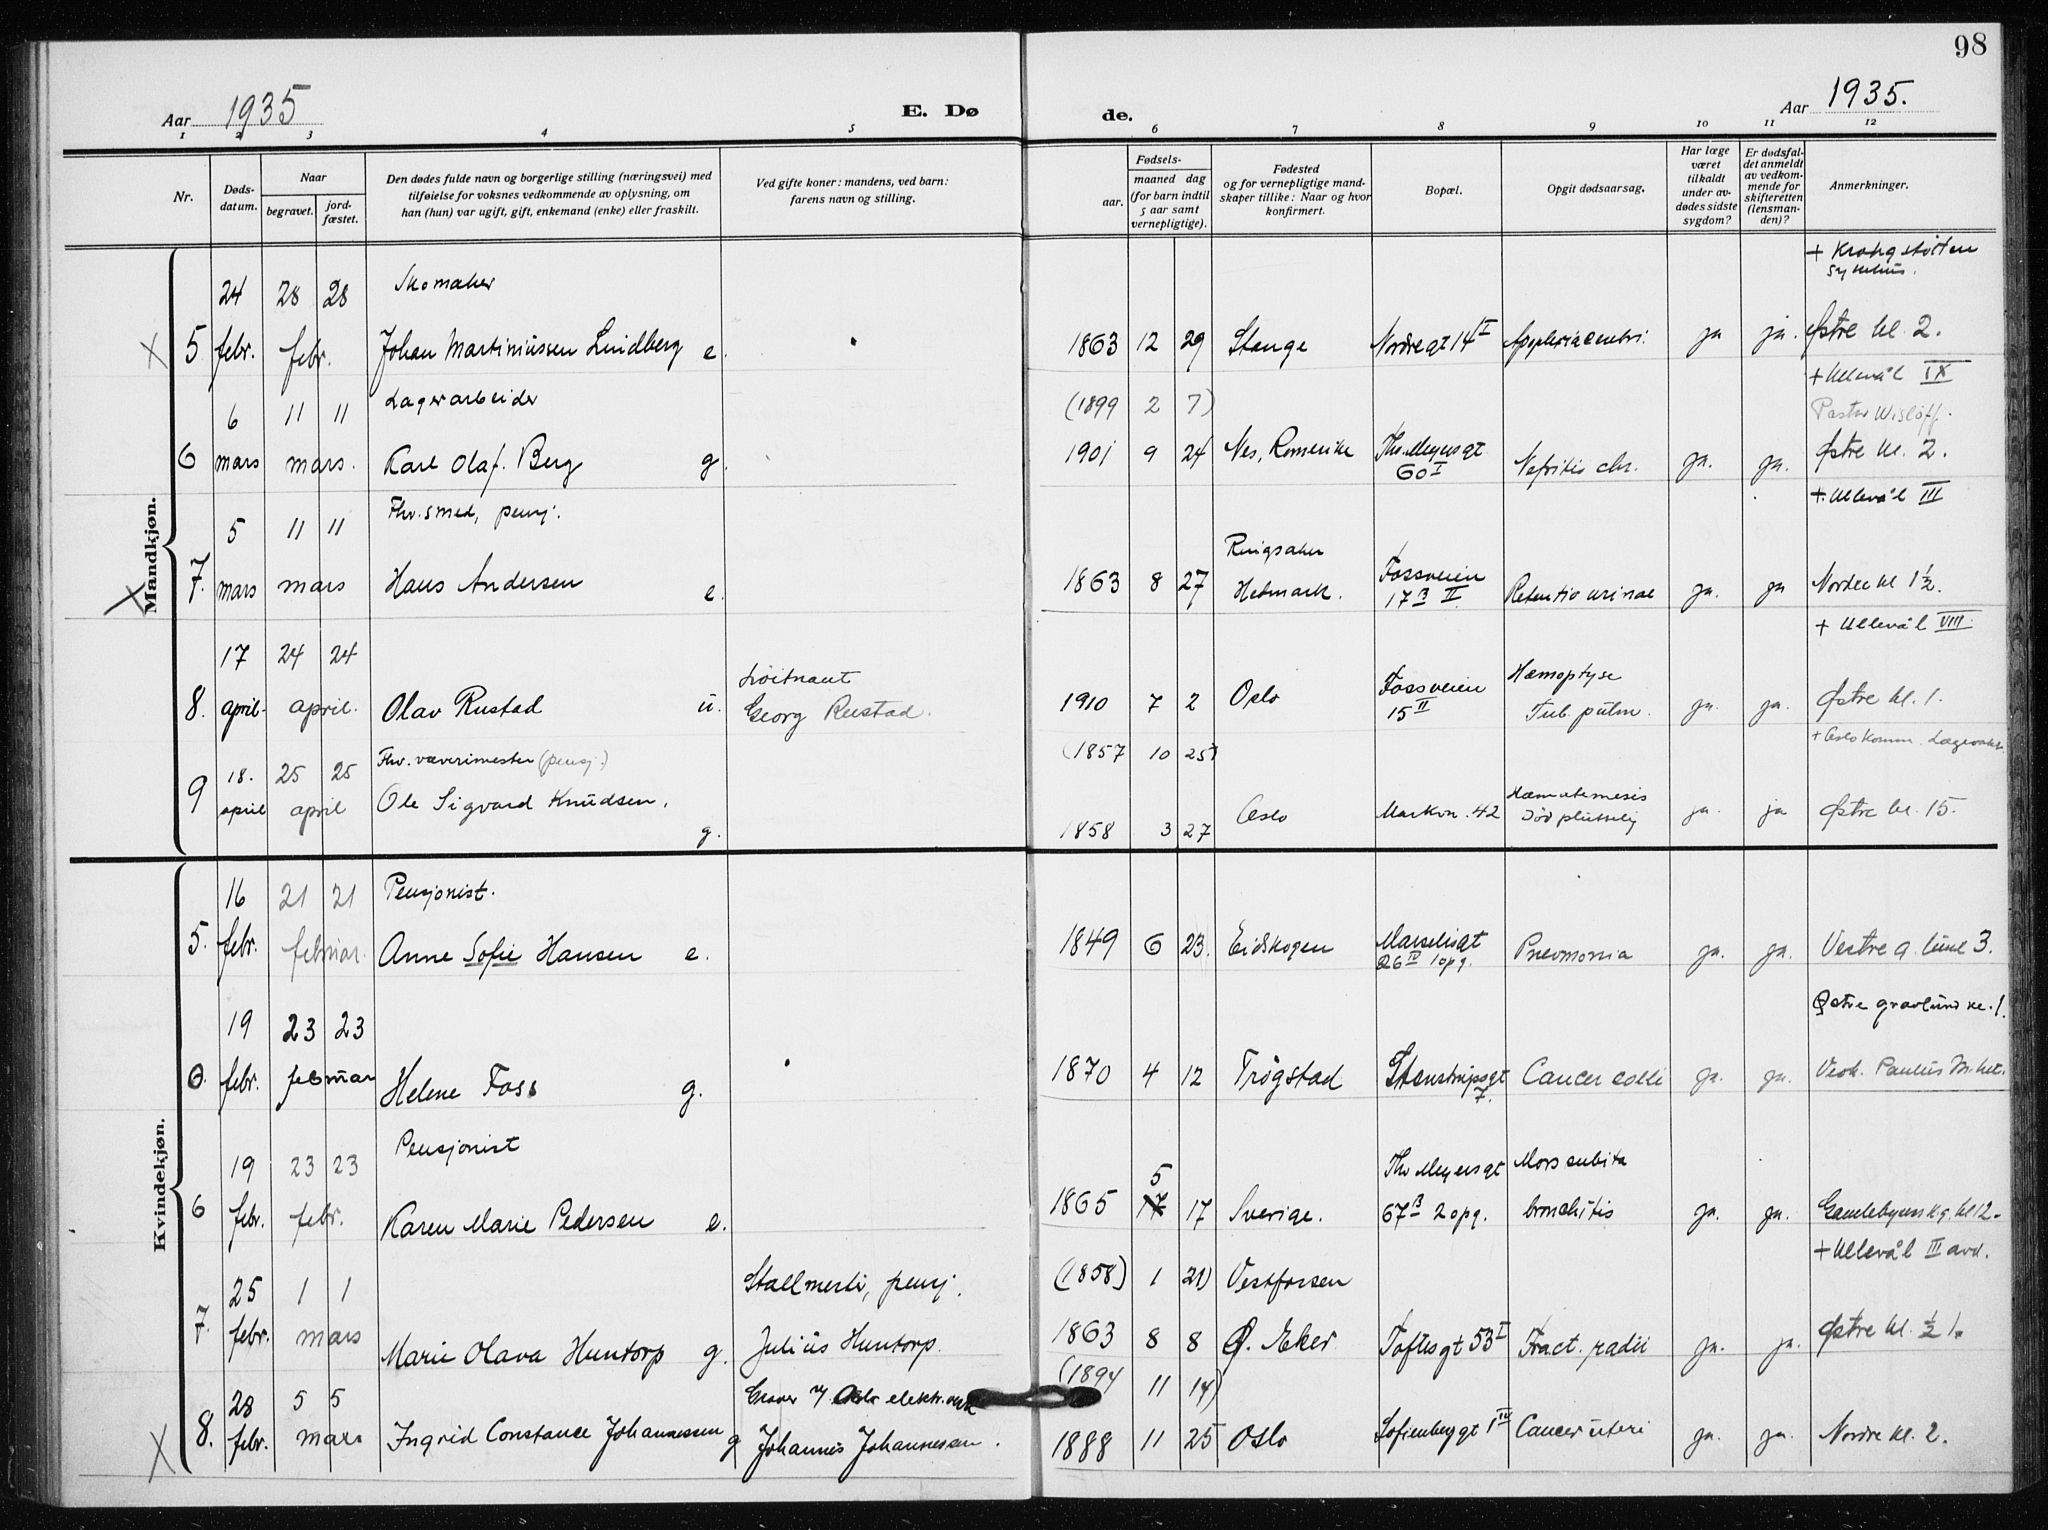 98
Aar 1935
E. Dø
de.
Aar 1935.
1 2 3 4 5 6 7 8 9 10 11 12
Nr.
Døds-
datum.
Naar
begravet.
jord-
fæstet.
Den dødes fulde navn og borgerlige stilling (næringsvei) med
tilføielse for voksnes vedkommende av oplysning, om
han (hun) var ugift, gift, enkemand (enke) eller fraskilt.
Ved gifte koner: mandens, ved barn:
farens navn og stilling.
Fødsels-
aar.
maaned dag
(for barn indtil
5 aar samt
vernepligtige).
Fødested
og for vernepligtige mand-
skaper tillike: Naar og hvor
konfirmert.
Bopæl.
Opgit dødsaarsag.
Har læge
været
tilkaldt
under av-
dødes sidste
sygdom?
Er dødsfal-
det anmeldt
av vedkom-
mende for
skifteretten
(lensman-
den)?
Anmerkninger.
Mandkjøn.
+ Krohgstøtten
sykehus.
24 28 28 Skomaker
5 febr. febr. Johan Martiniussen Lindberg e. 1863 12 29 Stange Nordregt 14 I Apoplexia cerebri. ja ja. Østre kl. 2.
+ Ullevål IX
6 11 11 Lagerarbeider (1899 2 7) Pastor Wisløff.
6 mars mars. Karl Olaf. Berg g. 1901 9 24 Nes, Romerike Th. Meyersgt 60 I Nefritis chr. ja. ja. Østre kl. 2.
+ Ullevål III
5 11 11 Fhv. smed, pensj. Ringsaker
7. mars mars Hans Andersen e. 1863 8 27 Hedmark. Fossveien 17 B II Retentio urinae ja. ja Nordre kl 1 1/2.
+ Ullevål VIII
17 24 24 Løitnant Hæmoptyse
8. april. april. Olav Rustad u. Georg Rustad. 1910 7 2 Oslo Fossveien 15 II Tub. pulm. ja. ja. Østre kl. 1.
18. 25 25 Fhv. væverimester (pensj.) (1857 10 25) + Oslo komm. Lægevakt.
9 april april Ole Sigvard Knudsen. g. 1858 3 27 Oslo Markvn. 42 Hæmatemesis Død plutselig ja. ja Østre kl. 15.
Kvindekjøn.
16 21 21 Pensjonist.
5. febr. februar. Anne Sofie Hansen e. 1849 6 23. Eidskogen Marselisgt 26 IV 1 opg. Pneumonia ja. ja. Vestre g. lund 3.
19 23 23 Østre gravlund kl. 1.
6. febr. februar Helene Foss g. 1870 4 12 Trøgstad Stenstrupsgt 7. Cancer colli ja. ja. Vedk. Paulus M.het.
19 23 23 Pensjonist 5 Th Meyersgt Mors subita
6 febr. febr. Karen Marie Pedersen e. 1865 17 17 Sverige. 67 B 2 opg. bronchitis ja. ja. Gamlebyens kg. kl 12.
+ Ullevål III avd.
25 1 1 Stallmestr, pensj. (1858) 1 21) Vestfossen
7. febr. mars Marie Olava Huntorp g. Julius Huntorp. 1863 8 8 Ø. Eker Toftesgt 53 I Fract. radii ja. ja. Østre kl. 1/2 1.
28 5 5 Graver v. Oslo elektr. verk (1894 11 14)
8. febr. mars Ingrid Constance Johannessen g Johannes Johannessen. 1888 11 25 Oslo Sofienberggt 1 IV Cancer uteri ja. ja. Nordre kl. 2.